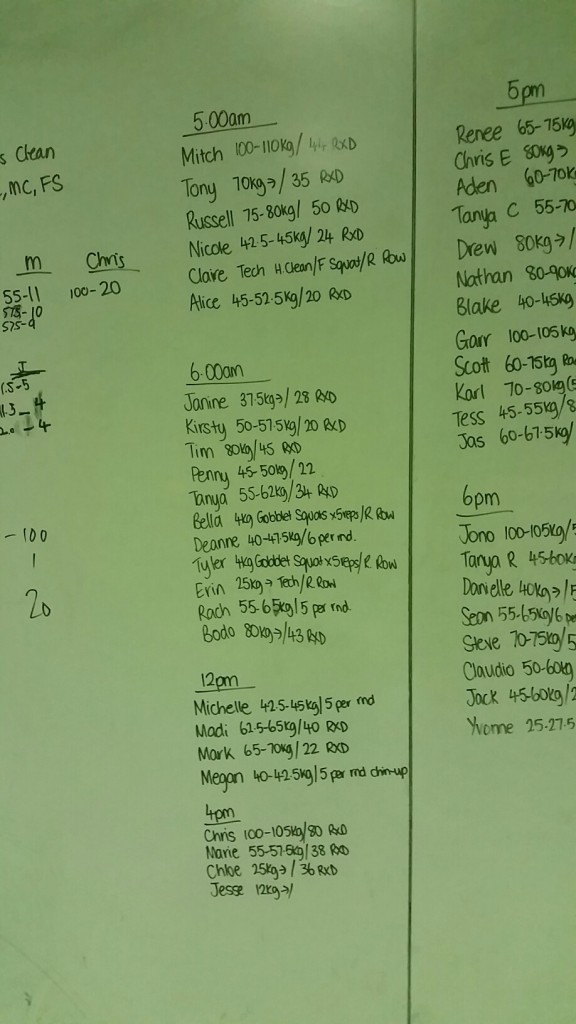 s Clean
, MC, FS
M
Chris
55-11
100-20
575-10
575-9
J
- 4
- 4
- 100
1
20
5.00am
Mitch 100-110kg/ 44 RXD
Tony 70kg→/ 35 RXD
Russell 75-80kg/ 50 RXD
Nicole 42.5-45kg/ 24 RXD
Claire Tech H.Clean/F Squat/R Row
Alice 45-52.5kg/20 RXD
6.00am
Janine 37.5kg→/ 28 RXD
Kirsty 50-57.5kg/20 RXD
Tim 80kg/45 RXD
Penny 45-50kg/ 22
Tanya 55-62kg/34 RXD
Bella 4kg Gobblet Squats x5reps/R.Row
Deanne 40-47.5kg/6 per rnd.
Tyler 4kg Gobblet Squat x5reps/R. Row
Erin 25kg→ Tech/R.Row
Rach 55-65kg/5 per rnd.
Bodo 80kg→/43 RXD
12pm
Michelle 42.5-45kg/5 per rnd
Madi 62.5-65kg/40 RXD
Mark 65-70kg/22 RXD
Megan 40-42.5kg/5 per rnd chin-up
4pm
Chris 100-105kg/80 RXD
Marie 55-57.5kg/38 RXD
Chloe 25kg→/ 36 RXD
Jesse 12kg→/
5pm
Renee 65-75kg
Chris E 80kg→
Aden 60-70k
Tanya C 55-70
Drew 80kg→/
Nathan 80-90kg
Blake 40-45kg
Garr 100-105kg
Scott 60-75kg
Karl 70-80kg
Tess 45-55kg/8
Jas 60-67.5kg/
6pm
Jono 100-105kg/5
Tanya R 45-60k
Danielle 40kg→/5
Sean 55-65kg/6 pe
Steve 70-75kg/5
Claudio 50-60kg
Jack 45-60kg/2
Yvonne 25-27.5